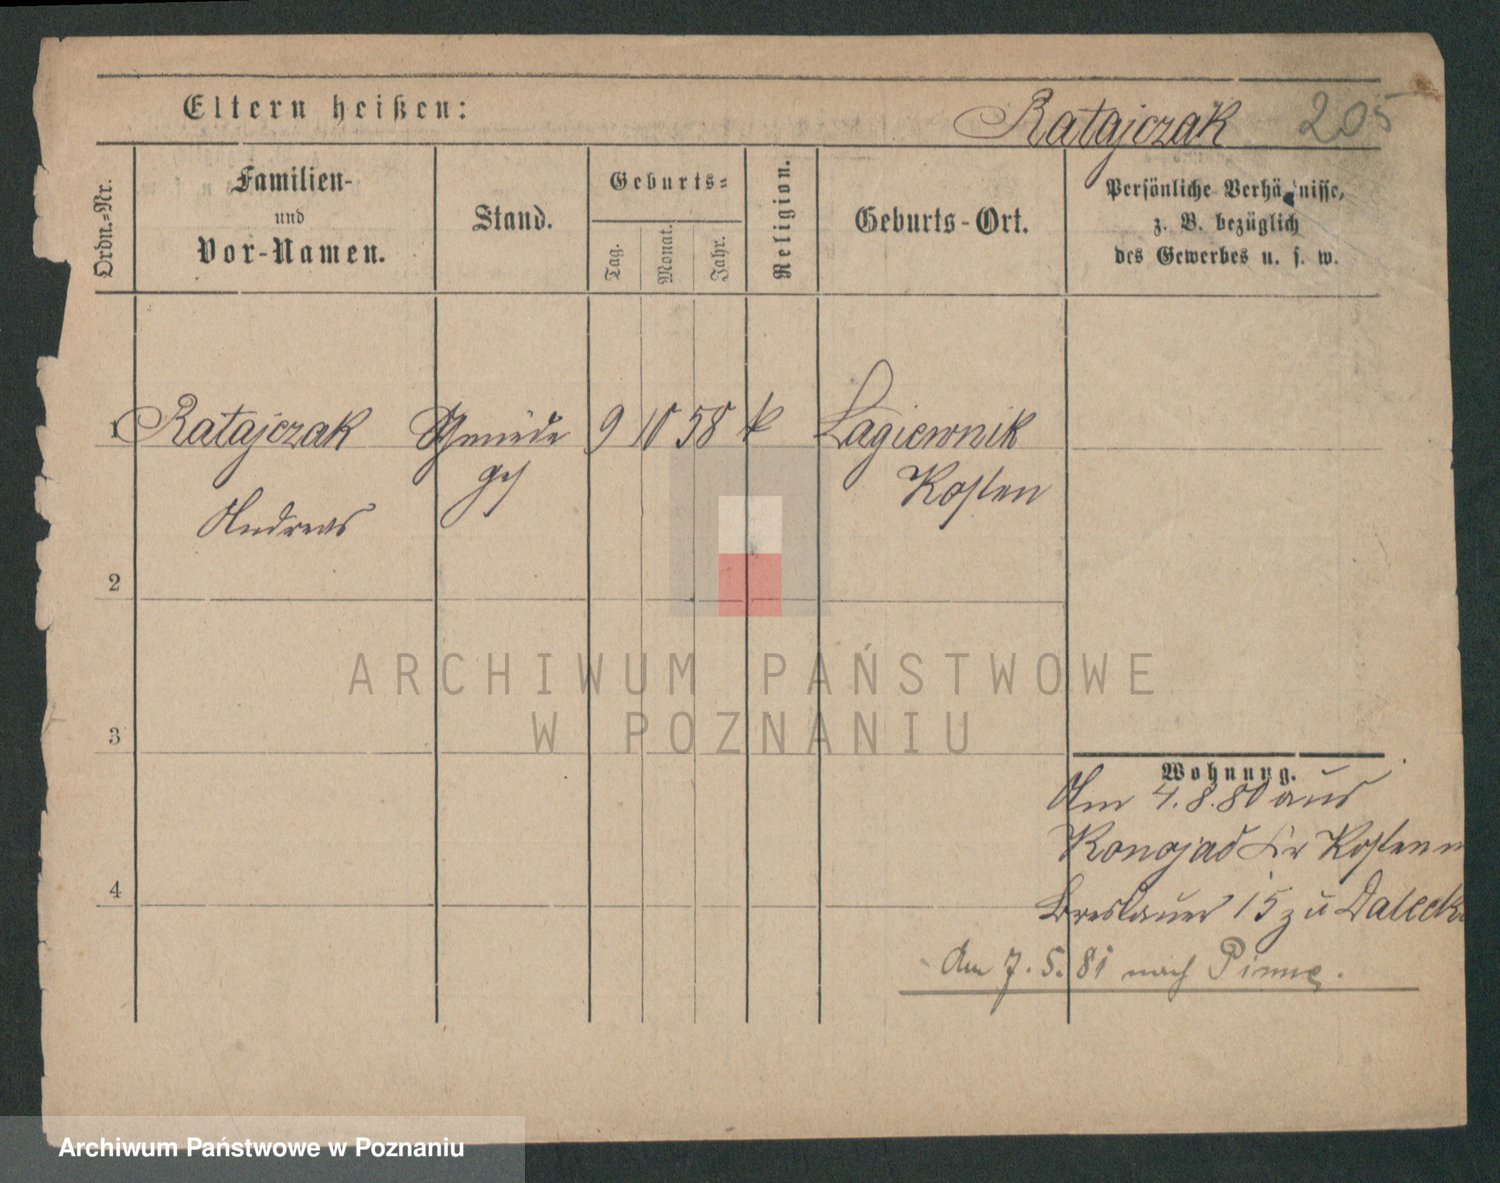 Eltern heißen:
Ratajczak 205
Ordn.-Nr.
Familien-
und
Vor-Namen.
Stand.
Geburts-
Tag.
Monat.
Jahr.
Religion.
Geburts-Ort.
Persönliche Verhältnisse,
z. B. bezüglich
des Gewerbes u. s. w.
1 Ratajczak Schmiede 9 10 58 k Lagiewnik
ges Kosten
Andreas
2
3
4
Wohnung.
Am 4.8.80 aus
Konojad Kr Kosten n
Breslauer 15 zu Daleck
Am 7.5.81 nach Pinne.
ARCHIWUM PAŃSTWOWE
W POZNANIU
Archiwum Państwowe w Poznaniu